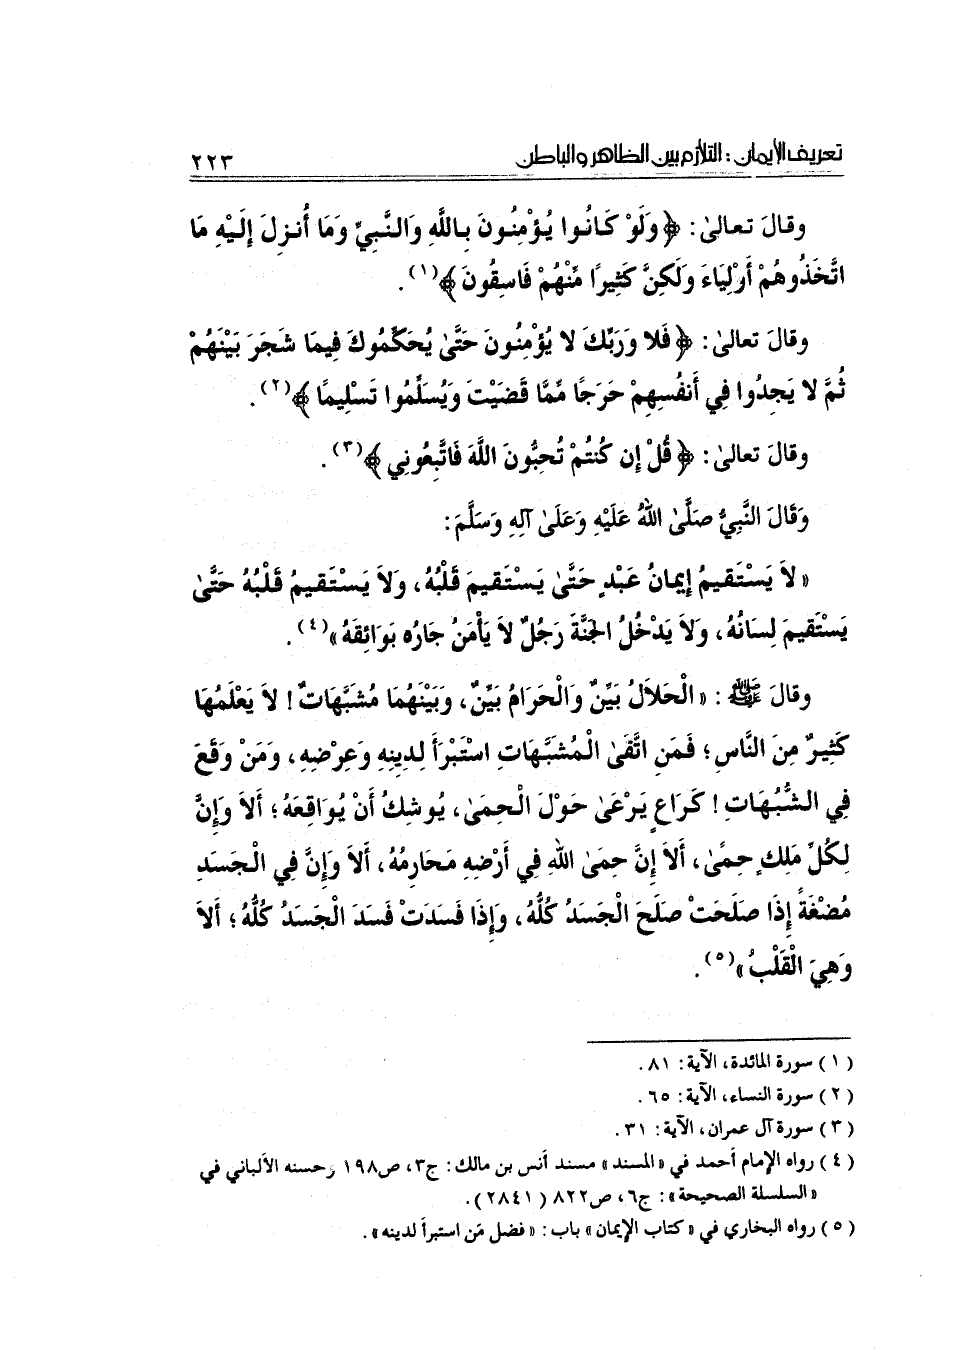 تعريف الأيمان : التلازم بين الظاهر والباطن ٢٢٣
وقالَ تعالىٰ: ﴿ وَلَوْ كَانُوا يُؤْمِنُونَ بِاللَّهِ وَالنَّبِيِّ وَمَا أُنزِلَ إِلَيْهِ مَا
اتَّخَذُوهُمْ أَوْلِيَاءَ وَلَكِنَّ كَثِيرًا مِّنْهُمْ فَاسِقُونَ ﴾(١).
وقالَ تعالىٰ: ﴿ فَلا وَرَبِّكَ لا يُؤْمِنُونَ حَتَّىٰ يُحَكِّمُوكَ فِيمَا شَجَرَ بَيْنَهُمْ
ثُمَّ لا يَجِدُوا فِي أَنفُسِهِمْ حَرَجًا مِّمَّا قَضَيْتَ وَيُسَلِّمُوا تَسْلِيمًا ﴾(٢).
وقالَ تعالىٰ: ﴿ قُلْ إِن كُنتُمْ تُحِبُّونَ اللَّهَ فَاتَّبِعُونِي ﴾(٣).
وَقَالَ النَّبِيُّ صَلَّىٰ اللهُ عَلَيْهِ وَعَلَىٰ آلِهِ وَسَلَّمَ:
« لاَ يَسْتَقِيمُ إِيمَانُ عَبْدٍ حَتَّىٰ يَسْتَقِيمَ قَلْبُهُ، وَلاَ يَسْتَقِيمُ قَلْبُهُ حَتَّىٰ
يَسْتَقِيمَ لِسَانُهُ، وَلاَ يَدْخُلُ الجَنَّةَ رَجُلٌ لاَ يَأْمَنُ جَارُه بَوَائِقَهُ»(٤).
وقالَ ﷺ : « الْحَلاَلُ بَيِّنٌ وَالْحَرَامُ بَيِّنٌ، وَبَيْنَهُمَا مُشَبَّهَاتٌ ! لاَ يَعْلَمُهَا
كَثِيرٌ مِنَ النَّاسِ؛ فَمَنِ اتَّقَىٰ الْمُشَبَّهَاتِ اسْتَبْرَأَ لِدِينِهِ وَعِرْضِهِ، وَمَنْ وَقَعَ
فِي الشُّبُهَاتِ ! كَرَاعٍ يَرْعَىٰ حَوْلَ الْحِمَىٰ، يُوشِكُ أَنْ يُوَاقِعَهُ؛ أَلاَ وَإِنَّ
لِكُلِّ مَلِكٍ حِمًىٰ، أَلاَ إِنَّ حِمَىٰ اللهِ فِي أَرْضِهِ مَحَارِمُهُ، أَلاَ وَإِنَّ فِي الْجَسَدِ
مُضْغَةً إِذَا صَلَحَتْ صَلَحَ الْجَسَدُ كُلُّهُ، وَإِذَا فَسَدَتْ فَسَدَ الْجَسَدُ كُلُّهُ؛ أَلاَ
وَهِيَ الْقَلْبُ»(٥).
(١) سورة المائدة، الآية: ٨١.
(٢) سورة النساء، الآية: ٦٥.
(٣) سورة آل عمران، الآية: ٣١.
(٤) رواه الإمام أحمد في «المسند» مسند أنس بن مالك: ج٣، ص١٩٨ وحسنه الألباني في
«السلسلة الصحيحة»: ج٦، ص٨٢٢ (٢٨٤١).
(٥) رواه البخاري في «كتاب الإيمان» باب: «فضل مَن استبرأ لدينه».